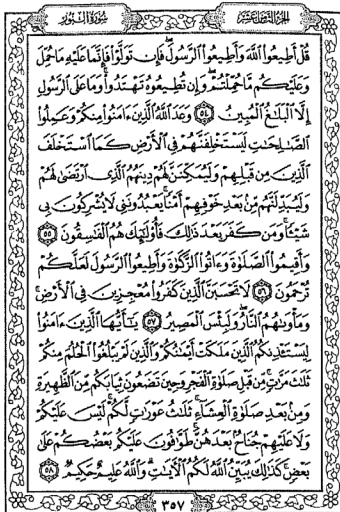 الجزء الثامن عشر
سورة النور
قُلْ أَطِيعُوا۟ ٱللَّهَ وَأَطِيعُوا۟ ٱلرَّسُولَ ۖ فَإِن تَوَلَّوْا۟ فَإِنَّمَا عَلَيْهِ مَا حُمِّلَ
وَعَلَيْكُم مَّا حُمِّلْتُمْ ۖ وَإِن تُطِيعُوهُ تَهْتَدُوا۟ ۚ وَمَا عَلَى ٱلرَّسُولِ
إِلَّا ٱلْبَلَٰغُ ٱلْمُبِينُ ﴿٥٤﴾ وَعَدَ ٱللَّهُ ٱلَّذِينَ ءَامَنُوا۟ مِنكُمْ وَعَمِلُوا۟
ٱلصَّٰلِحَٰتِ لَيَسْتَخْلِفَنَّهُمْ فِى ٱلْأَرْضِ كَمَا ٱسْتَخْلَفَ
ٱلَّذِينَ مِن قَبْلِهِمْ وَلَيُمَكِّنَنَّ لَهُمْ دِينَهُمُ ٱلَّذِى ٱرْتَضَىٰ لَهُمْ
وَلَيُبَدِّلَنَّهُم مِّنۢ بَعْدِ خَوْفِهِمْ أَمْنًا ۚ يَعْبُدُونَنِى لَا يُشْرِكُونَ بِى
شَيْـًٔا ۚ وَمَن كَفَرَ بَعْدَ ذَٰلِكَ فَأُو۟لَٰٓئِكَ هُمُ ٱلْفَٰسِقُونَ ﴿٥٥﴾
وَأَقِيمُوا۟ ٱلصَّلَوٰةَ وَءَاتُوا۟ ٱلزَّكَوٰةَ وَأَطِيعُوا۟ ٱلرَّسُولَ لَعَلَّكُمْ
تُرْحَمُونَ ﴿٥٦﴾ لَا تَحْسَبَنَّ ٱلَّذِينَ كَفَرُوا۟ مُعْجِزِينَ فِى ٱلْأَرْضِ ۚ
وَمَأْوَىٰهُمُ ٱلنَّارُ ۖ وَلَبِئْسَ ٱلْمَصِيرُ ﴿٥٧﴾ يَٰٓأَيُّهَا ٱلَّذِينَ ءَامَنُوا۟
لِيَسْتَـْٔذِنكُمُ ٱلَّذِينَ مَلَكَتْ أَيْمَٰنُكُمْ وَٱلَّذِينَ لَمْ يَبْلُغُوا۟ ٱلْحُلُمَ مِنكُمْ
ثَلَٰثَ مَرَّٰتٍ ۚ مِّن قَبْلِ صَلَوٰةِ ٱلْفَجْرِ وَحِينَ تَضَعُونَ ثِيَابَكُم مِّنَ ٱلظَّهِيرَةِ
وَمِنۢ بَعْدِ صَلَوٰةِ ٱلْعِشَآءِ ۚ ثَلَٰثُ عَوْرَٰتٍ لَّكُمْ ۚ لَيْسَ عَلَيْكُمْ
وَلَا عَلَيْهِمْ جُنَاحٌۢ بَعْدَهُنَّ ۚ طَوَّٰفُونَ عَلَيْكُم بَعْضُكُمْ عَلَىٰ
بَعْضٍ ۚ كَذَٰلِكَ يُبَيِّنُ ٱللَّهُ لَكُمُ ٱلْءَايَٰتِ ۗ وَٱللَّهُ عَلِيمٌ حَكِيمٌ ﴿٥٨﴾
٣٥٧